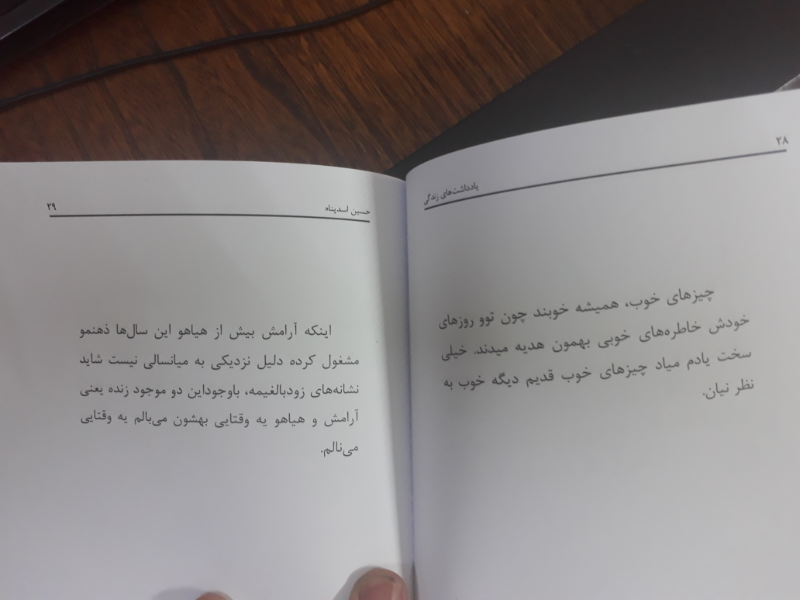 ۲۸
یادداشت‌های زندگی
چیزهای خوب، همیشه خوبند چون توو روزهای
خودش خاطره‌های خوبی بهمون هدیه میدند. خیلی
سخت یادم میاد چیزهای خوب قدیم دیگه خوب به
نظر نیان.
حسین اسدپناه
۲۹
اینکه آرامش بیش از هیاهو این سال‌ها ذهنمو
مشغول کرده دلیل نزدیکی به میانسالی نیست شاید
نشانه‌های زودبالغیمه، باوجوداین دو موجود زنده یعنی
آرامش و هیاهو یه وقتایی بهشون می‌بالم یه وقتایی
می‌نالم.